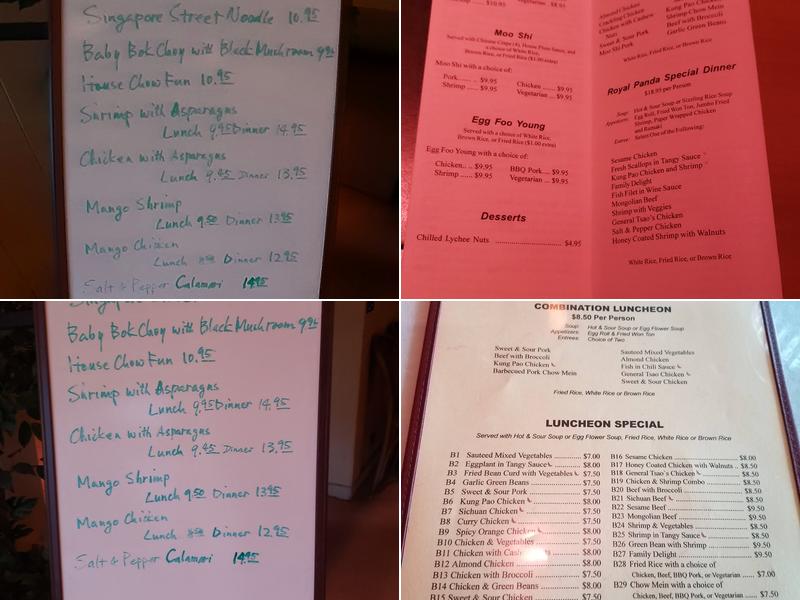 Singapore Street Noodle 10.95
Baby Bok Choy with Black Mushroom
House Chow Fun 10.95
Shrimp with Asparagus
Lunch 9.95 Dinner 14.95
Chicken with Asparagus
Lunch 9.45 Dinner 13.95
Mango Shrimp
Lunch 9.50 Dinner 13.95
Mango Chicken
Lunch Dinner 12.95
Salt & Pepper Calamari 14.95
$10.95
Moo Shi
Served with Chinese Crepe (4), House Plum Sauce, and
a choice of White Rice,
Brown Rice, or Fried Rice ($1.00 extra)
Moo Shi with a choice of:
Pork...... $9.95 Chicken ...... $9.95
Shrimp ..... $9.95 Vegetarian ... $9.95
Egg Foo Young
Served with a choice of White Rice,
Brown Rice, or Fried Rice ($1.00 extra)
Egg Foo Young with a choice of:
Chicken.. .. $9.95 BBQ Pork.... $9.95
Shrimp ...... $9.95 Vegetarian ... $9.95
Desserts
Chilled Lychee Nuts .......................... $4.95
Almond Chicken
Crackling Chicken
Chicken with Cashew
Nuts
Sweet & Sour Pork
Moo Shi Pork
Kung Pao Chicken
Shrimp Chow Mein
Beef with Broccoli
Garlic Green Beans
White Rice, Fried Rice, or Brown Rice
Royal Panda Special Dinner
$18.95 per Person
Soup: Hot & Sour Soup or Sizzling Rice Soup
Appetizers: Egg Roll, Fried Won Ton, Jumbo Fried
Shrimp, Paper Wrapped Chicken
and Rumaki
Entree: Select One of the Following:
Sesame Chicken
Fresh Scallops in Tangy Sauce
Kung Pao Chicken and Shrimp
Family Delight
Fish Filet in Wine Sauce
Mongolian Beef
Shrimp with Veggies
General Tsao's Chicken
Salt & Pepper Chicken
Honey Coated Shrimp with Walnuts
White Rice, Fried Rice, or Brown Rice
Baby Bok Choy with Black Mushroom
House Chow Fun 10.95
Shrimp with Asparagus
Lunch 9.95 Dinner 14.95
Chicken with Asparagus
Lunch 9.45 Dinner 13.95
Mango Shrimp
Lunch 9.50 Dinner 13.95
Mango Chicken
Lunch Dinner 12.95
Salt & Pepper Calamari 14.95
COMBINATION LUNCHEON
$8.50 Per Person
Soup: Hot & Sour Soup or Egg Flower Soup
Appetizers: Egg Roll & Fried Won Ton
Entrees: Choice of Two
Sweet & Sour Pork
Beef with Broccoli
Kung Pao Chicken
Barbecued Pork Chow Mein
Sauteed Mixed Vegetables
Almond Chicken
Fish in Chili Sauce
General Tsao Chicken
Sweet & Sour Chicken
Fried Rice, White Rice or Brown Rice
LUNCHEON SPECIAL
Served with Hot & Sour Soup or Egg Flower Soup, Fried Rice, White Rice or Brown Rice
B1 Sauteed Mixed Vegetables ............ $7.00
B2 Eggplant in Tangy Sauce ............ $8.00
B3 Fried Bean Curd with Vegetables . $7.50
B4 Garlic Green Beans ............ $7.50
B5 Sweet & Sour Pork ............ $7.50
B6 Kung Pao Chicken ............ $8.00
B7 Sichuan Chicken ............ $7.50
B8 Curry Chicken ............ $7.50
B9 Spicy Orange Chicken ............ $8.00
B10 Chicken & Vegetables ............ $7.50
B11 Chicken with ............ $8.00
B12 Almond Chicken ............ $8.00
B13 Chicken with Broccoli ............ $7.50
B14 Chicken & Green Beans ............ $8.00
B15 Sweet & Sour Chicken ............ $7.50
B16 Sesame Chicken ............ $8.00
B17 Honey Coated Chicken with Walnuts .. $8.50
B18 General Tsao's Chicken ............ $8.50
B19 Chicken & Shrimp Combo ............ $8.50
B20 Beef with Broccoli ............ $8.50
B21 Sichuan Beef ............ $8.50
B22 Sesame Beef ............ $9.50
B23 Mongolian Beef ............ $9.50
B24 Shrimp & Vegetables ............ $8.50
B25 Shrimp in Tangy Sauce ............ $8.50
B26 Green Bean with Shrimp ............ $9.50
B27 Family Delight ............ $9.50
B28 Fried Rice with a choice of
Chicken, Beef, BBQ Pork, or Vegetarian ...... $7.00
B29 Chow Mein with a choice of
Chicken, Beef, BBQ Pork, or Vegetarian ...... $7.50